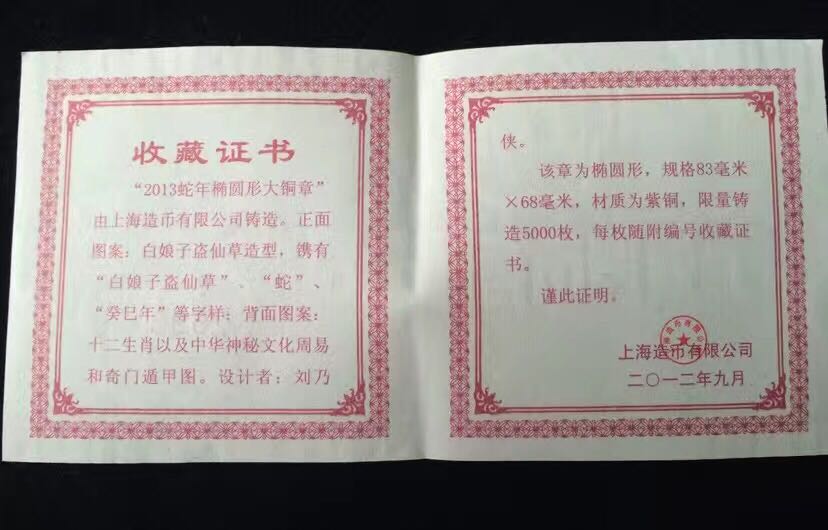 收藏证书
“2013蛇年椭圆形大铜章”
由上海造币有限公司铸造。正面
图案：白娘子盗仙草造型，镌有
“白娘子盗仙草”、“蛇”、
“癸巳年”等字样；背面图案：
十二生肖以及中华神秘文化周易
和奇门遁甲图。设计者：刘乃
侠。
该章为椭圆形，规格83毫米
×68毫米，材质为紫铜，限量铸
造5000枚，每枚随附编号收藏证
书。
谨此证明。
上海造币有限公司
二〇一二年九月